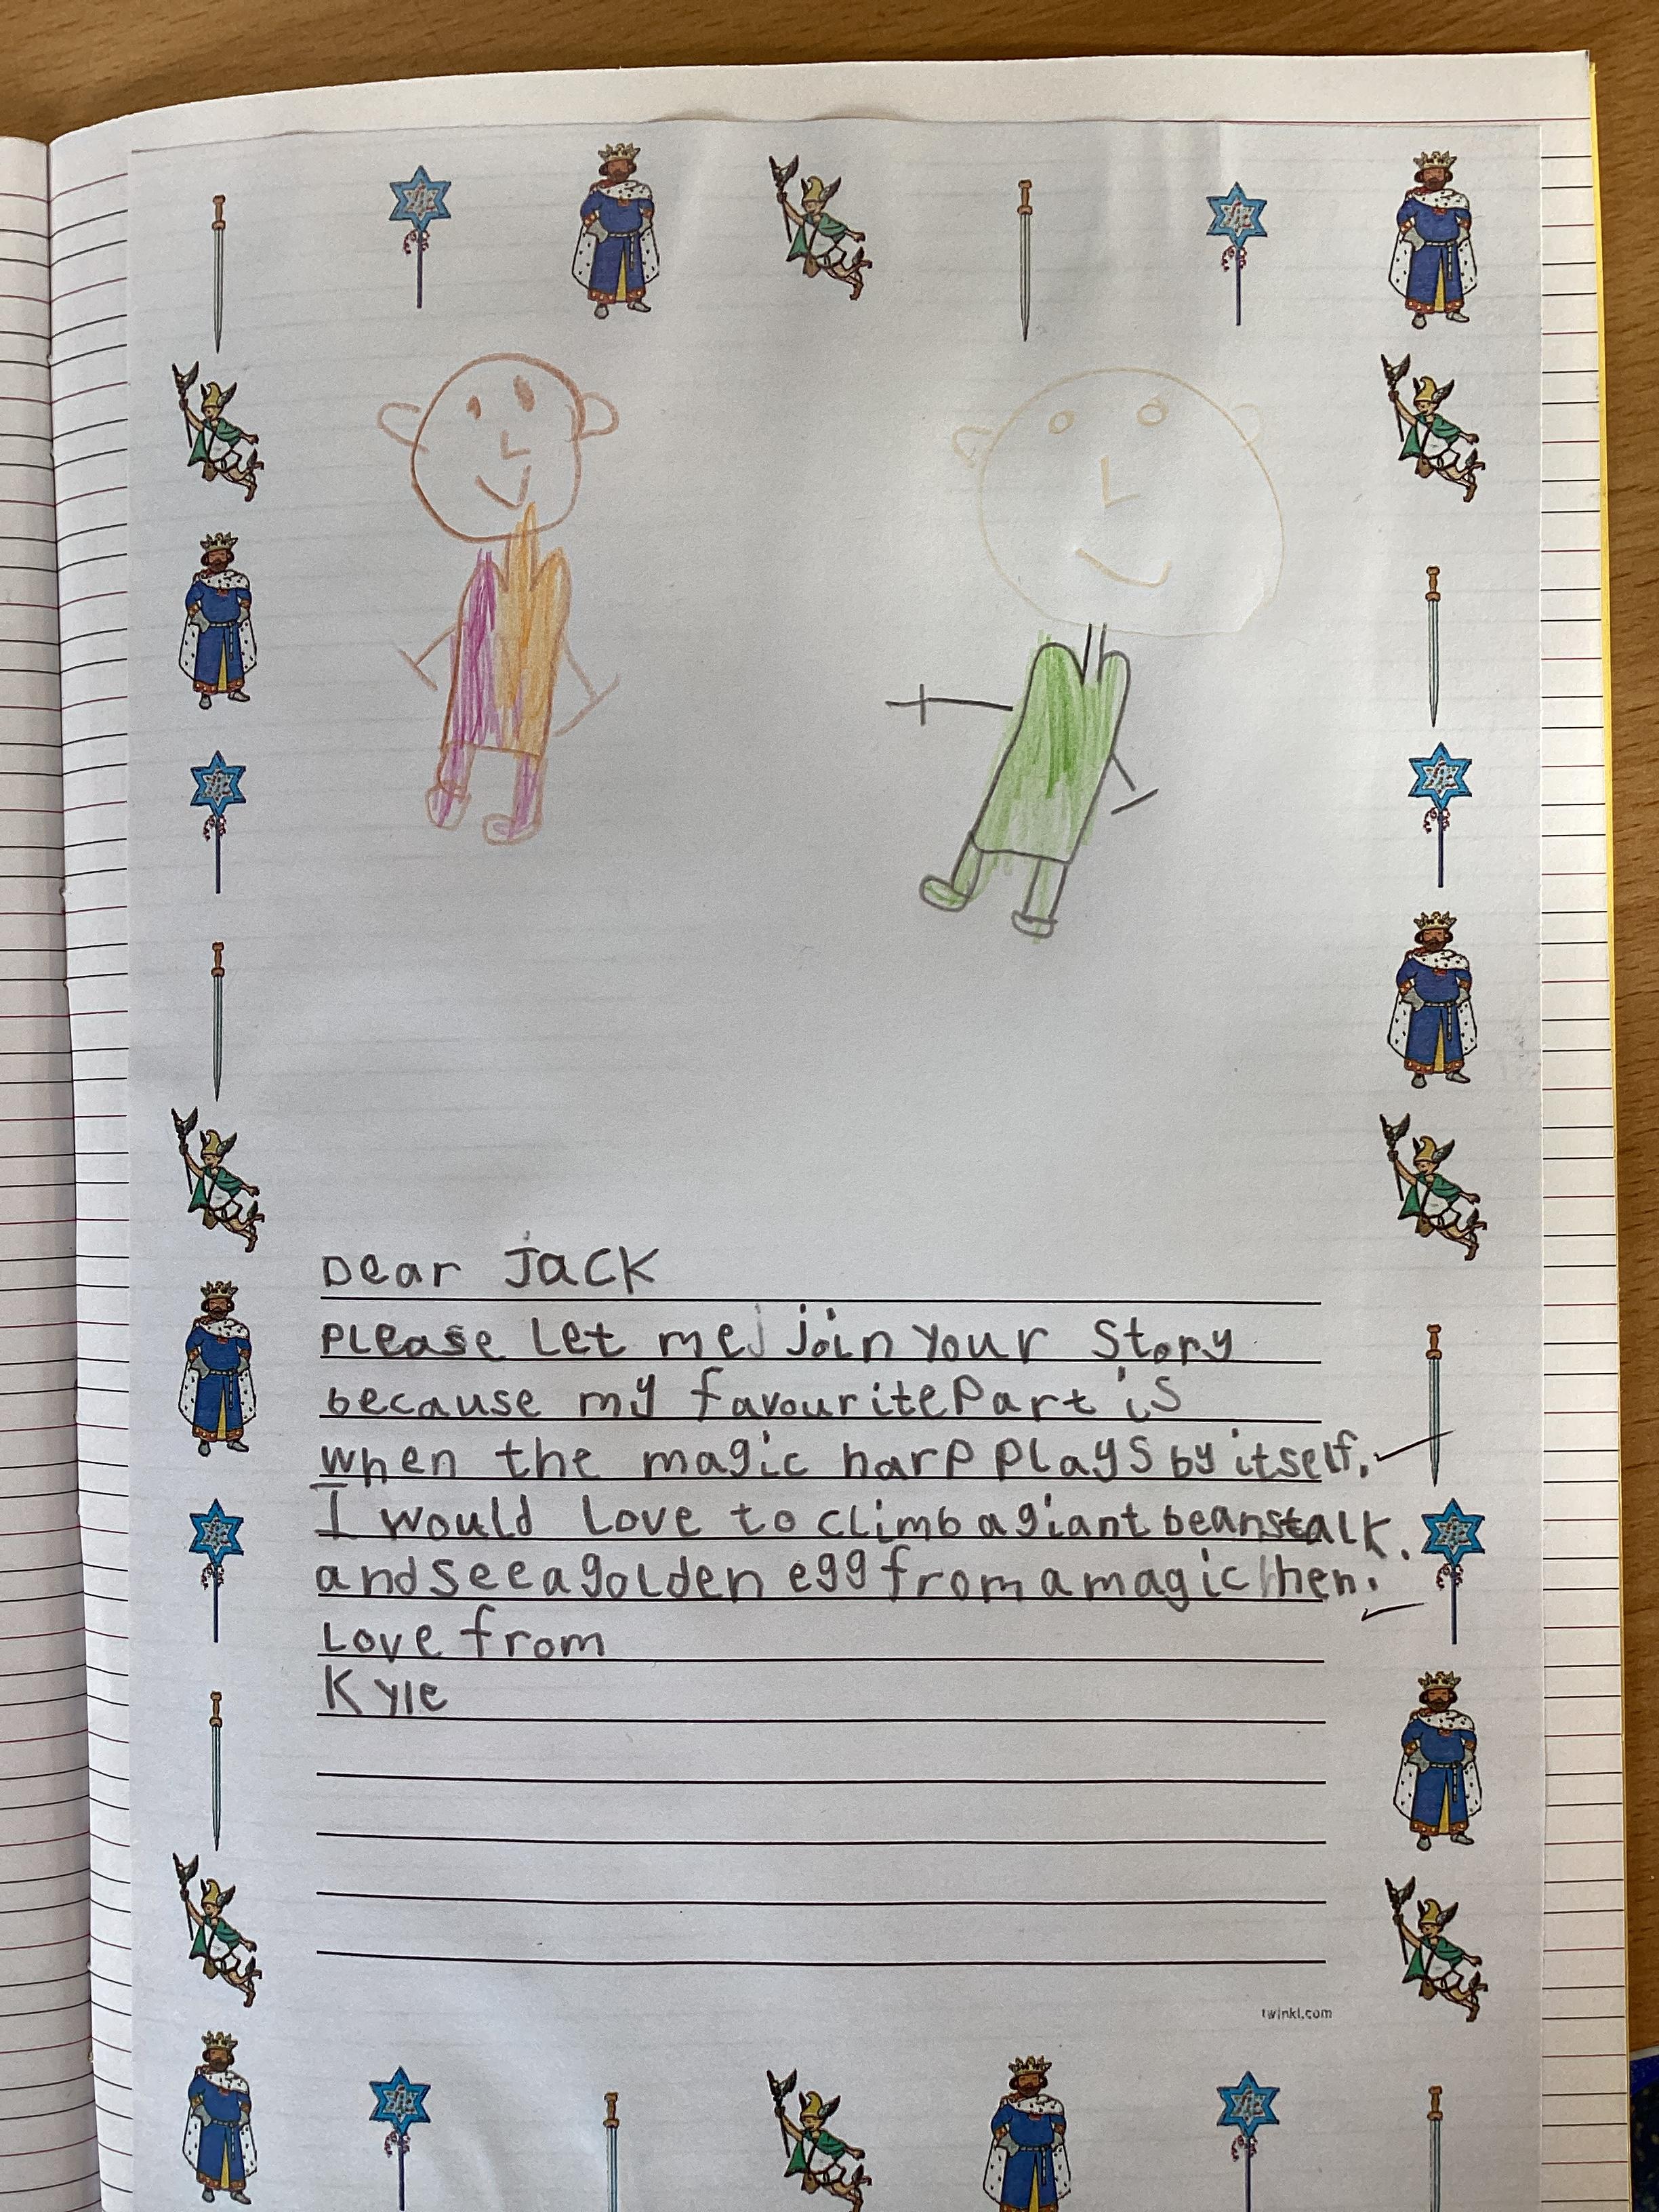 Dear Jack
please let me join your story
because my favourite part is
when the magic harp plays by itself.
I would love to climb a giant beanstalk.
and see a golden egg from a magic hen.
Love from
Kyle
twinkl.com